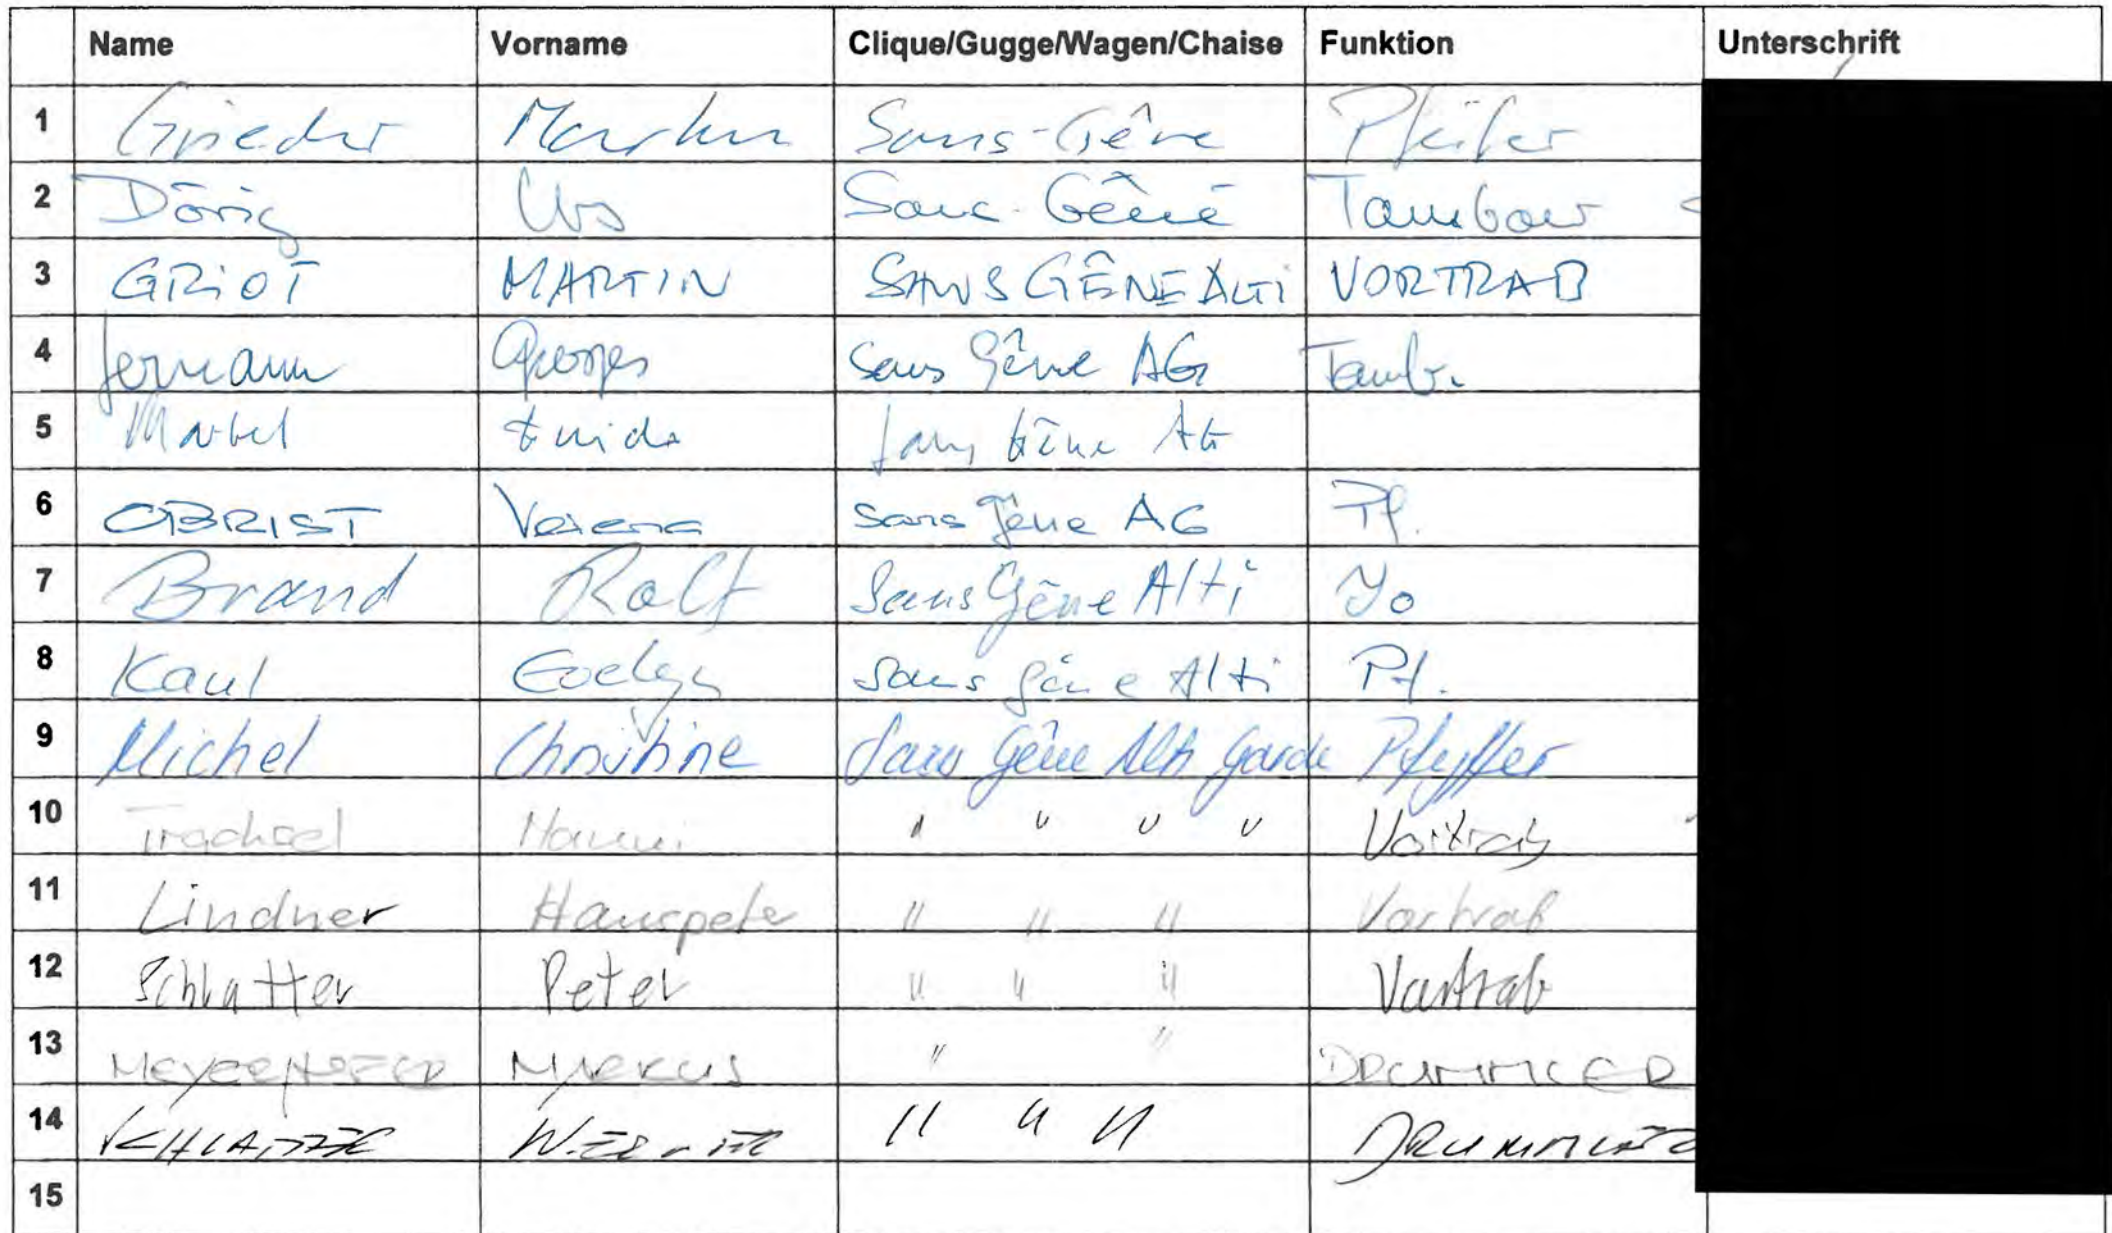 Name Vorname Clique/Gugge/Wagen/Chaise Funktion Unterschrift
1 Grieder Markus Sans-Gêne Pfeifer
2 Dörig Urs Sans-Gêne Tambour
3 GRIOT MARTIN SANS GÊNE ALTI VORTRAB
4 Jermann Georges Sans Gêne AG Tamb.
5 Guido Sans Gêne AG
6 OBRIST Verena Sans Gêne AG Pf.
7 Brand Rolf Sans Gêne Alti
8 Kaul Evelyn Sans Gêne Alti Pf.
9 Michel Christine Sans Gêne Alti Garde Pfyffer
10 Trachsel Hanni " " " " Vortrab
11 Lindner Hanspeter " " " Vortrab
12 Schlatter Peter " " " Vortrab
13 MEYERHOFER MARKUS " " DRUMMLER
14 WERNER " " " DRUMMLER
15